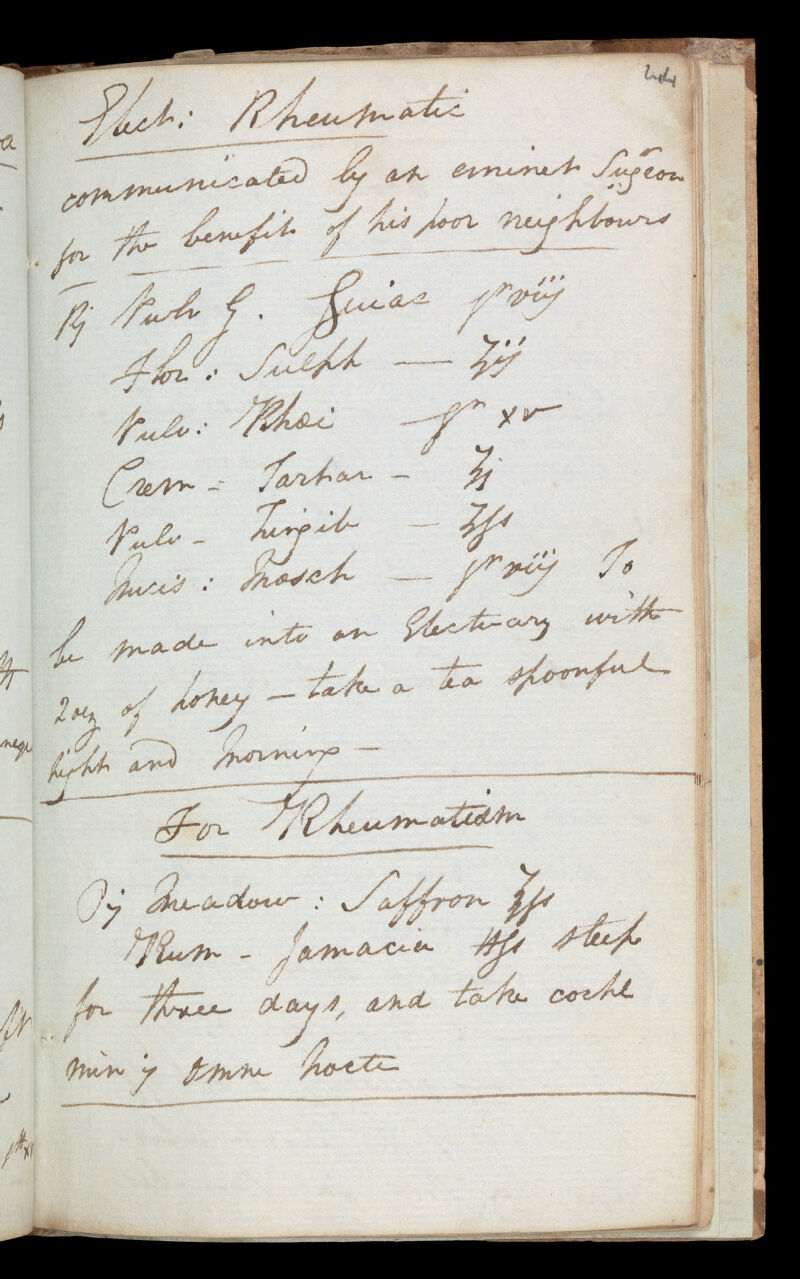 44
Elect: Rheumatic
communicated by an eminent Sugeon
for the benefit of his poor neighbours
Rj Pulv G. Guiac gr viij
Flor: Sulph — ʒij
Pulv: Rhœi — gr xv
Crem - Tartar - ʒj
Pulv - Zingib — ʒſs
Nucis: Mosch — gr viij To
be made into an Electuary with
2 oz of honey — take a tea spoonful
night and Morning —
For Rheumatism
Rj Meadow: Saffron ℥ſs
Rum - Jamacia ℔ſs steep
for three days, and take cochl
min j omne nocte